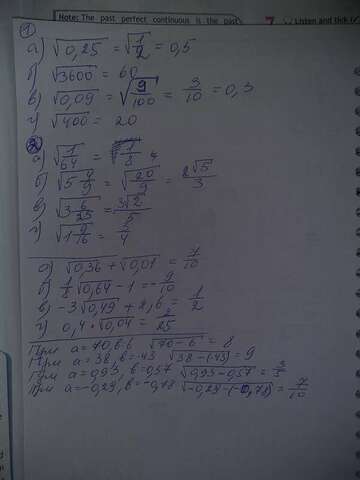 Note: The past perfect continuous is the past
7 Listen and tick
①
а) √0,25 = √1/2 = 0,5
б) √3600 = 60
в) √0,09 = √9/100 = 3/10 = 0,3
г) √400 = 20
②
а) √1/64 = 1/8
б) √5 4/9 = √20/9 = 2√5/3
в) √3 6/25 = 3√2/5
г) √1 9/16 = 5/4
а) √0,36 + √0,01 = 7/10
б) 1/8 √0,64 - 1 = -9/10
в) -3√0,49 + 2,6 = 1/2
г) 0,4 · √0,04 = 2/25
При a = 70, в = 6 √70-6 = 8
При a = 38, в = -43 √38-(-43) = 9
При a = 0,93, в = 0,57 √0,93-0,57 = 3/5
При a = -0,29, в = -0,78 √-0,29-(-0,78) = 7/10